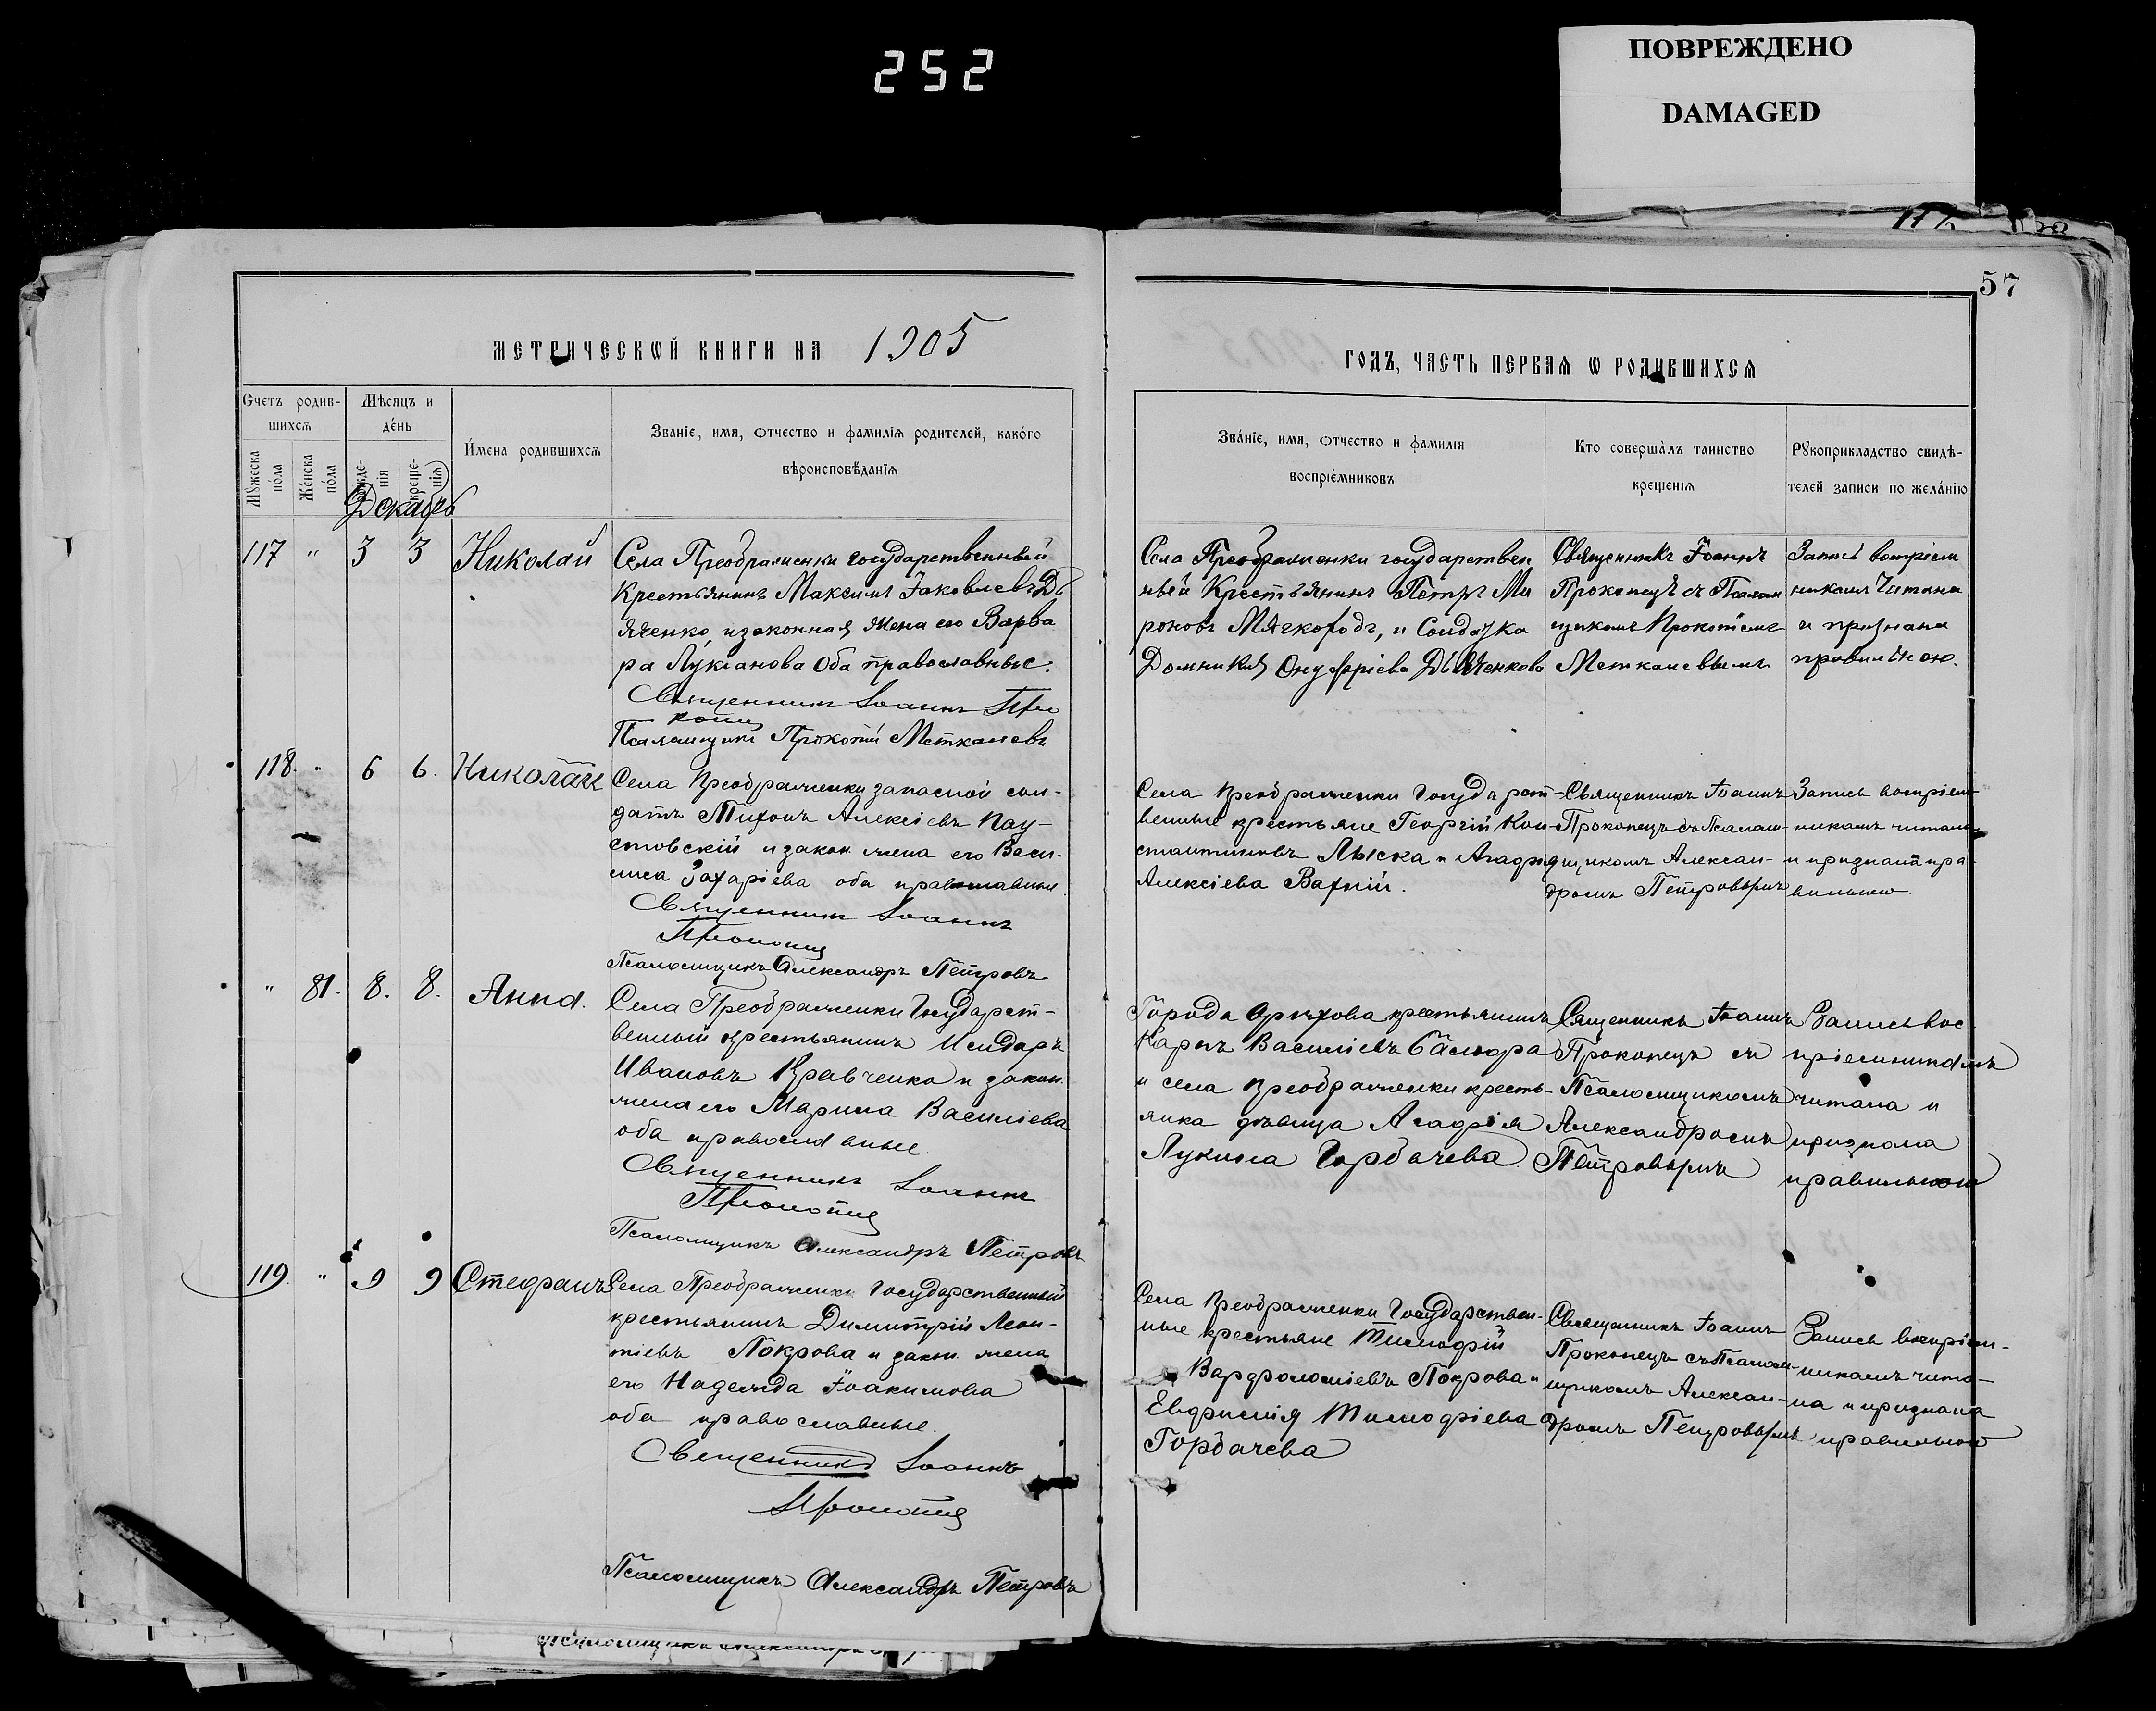 252
ПОВРЕЖДЕНО
DAMAGED
57
МЕТРИЧЕСКѠЙ КНИГИ НА 1905
ГОДЪ, ЧАСТЬ ПЕРВАѦ Ѡ РОДИВШИХСѦ
Счетъ родив-
шихсѧ
Мꙋжеска
по́ла
Же́нска
по́ла
Мѣсяцъ и
де́нь
рожде-
нія
креще-
нія
И́мена родившихсѧ
Званіе, имя, отчество и фамиліѧ родителей, како́го
вѣроисповѣ́даніѧ
Зва́ніе, имя, отчество и фамилія
воспріе́мниковъ
Кто соверша̀лъ таинство
крещеніѧ
Рꙋкоприкладство свидѣ-
телей записи по жела́нію
Декабрь
117 " 3 3 Николай
Села Преображенки государственный
Крестьянинъ Максимъ Іаковлевъ Дь
яченко, и законная жена его Варва
ра Лукіанова Оба православные.
Священникъ Іоаннъ Про
копец
Псаломщикъ Прокопій Меткалевъ
Села Преображенки государствен
ный Крестьянинъ Петръ Ми
роновъ Мягкоходъ, и Солдатка
Домникія Онуфріева Дьяченкова
Священникъ Іоаннъ
Прокопецъ съ Псалом
щикомъ Прокопіемъ
Меткалевымъ
Запись воспріем
никамъ Читана
и признана
правильною.
118. " 6 6. Николай
Села Преображенки запасной сол-
датъ Тихонъ Алексіевъ Пау-
стовскій и закон. жена его Васи-
лиса Захаріева оба православные.
Священникъ Іоаннъ
Прокопец
Псаломщикъ Александръ Петровъ
Села Преображенки Государст-
венные крестьяне Георгій Кон-
стантиновъ Лыска и Агафія
Алексіева Вахній.
Священникъ Іоаннъ
Прокопецъ съ Псалом-
щикомъ Алексан-
дромъ Петровымъ
Запись воспріем-
никамъ читана
и признана пра-
вильною.
" 81. 8. 8. Анна.
Села Преображенки Государст-
венный крестьянинъ Исидоръ
Ивановъ Кравченко и закон.
жена его Марина Василіева
оба православные.
Священникъ Іоаннъ
Прокопец
Псаломщикъ Александръ Петровъ
Города Орѣхова крестьянинъ
Карпъ Василіевъ
и села Преображенки кресть-
янка дѣвица Агафія
Лукина Горбачева.
Священникъ Іоаннъ
Прокопецъ съ
Псаломщикомъ
Александромъ
Петровымъ
Запись вос-
пріемникамъ
читана и
признана
правильною
119. " 9 9 Стефанъ
Села Преображенки Государственный
крестьянинъ Димитрій Леон-
тіевъ Покрова и закон. жена
его Надежда Іоакимова
оба православные.
Священникъ Іоаннъ
Прокопец
Псаломщикъ Александръ Петровъ
Села Преображенки Государствен-
ные крестьяне Тимофій
Варфоломіевъ Покрова и
Евфимія Тимофіева
Горбачева
Священникъ Іоаннъ
Прокопецъ съ Псалом-
щикомъ Алексан-
дромъ Петровымъ
Запись воспріем-
никамъ чита-
на и признана
правильной